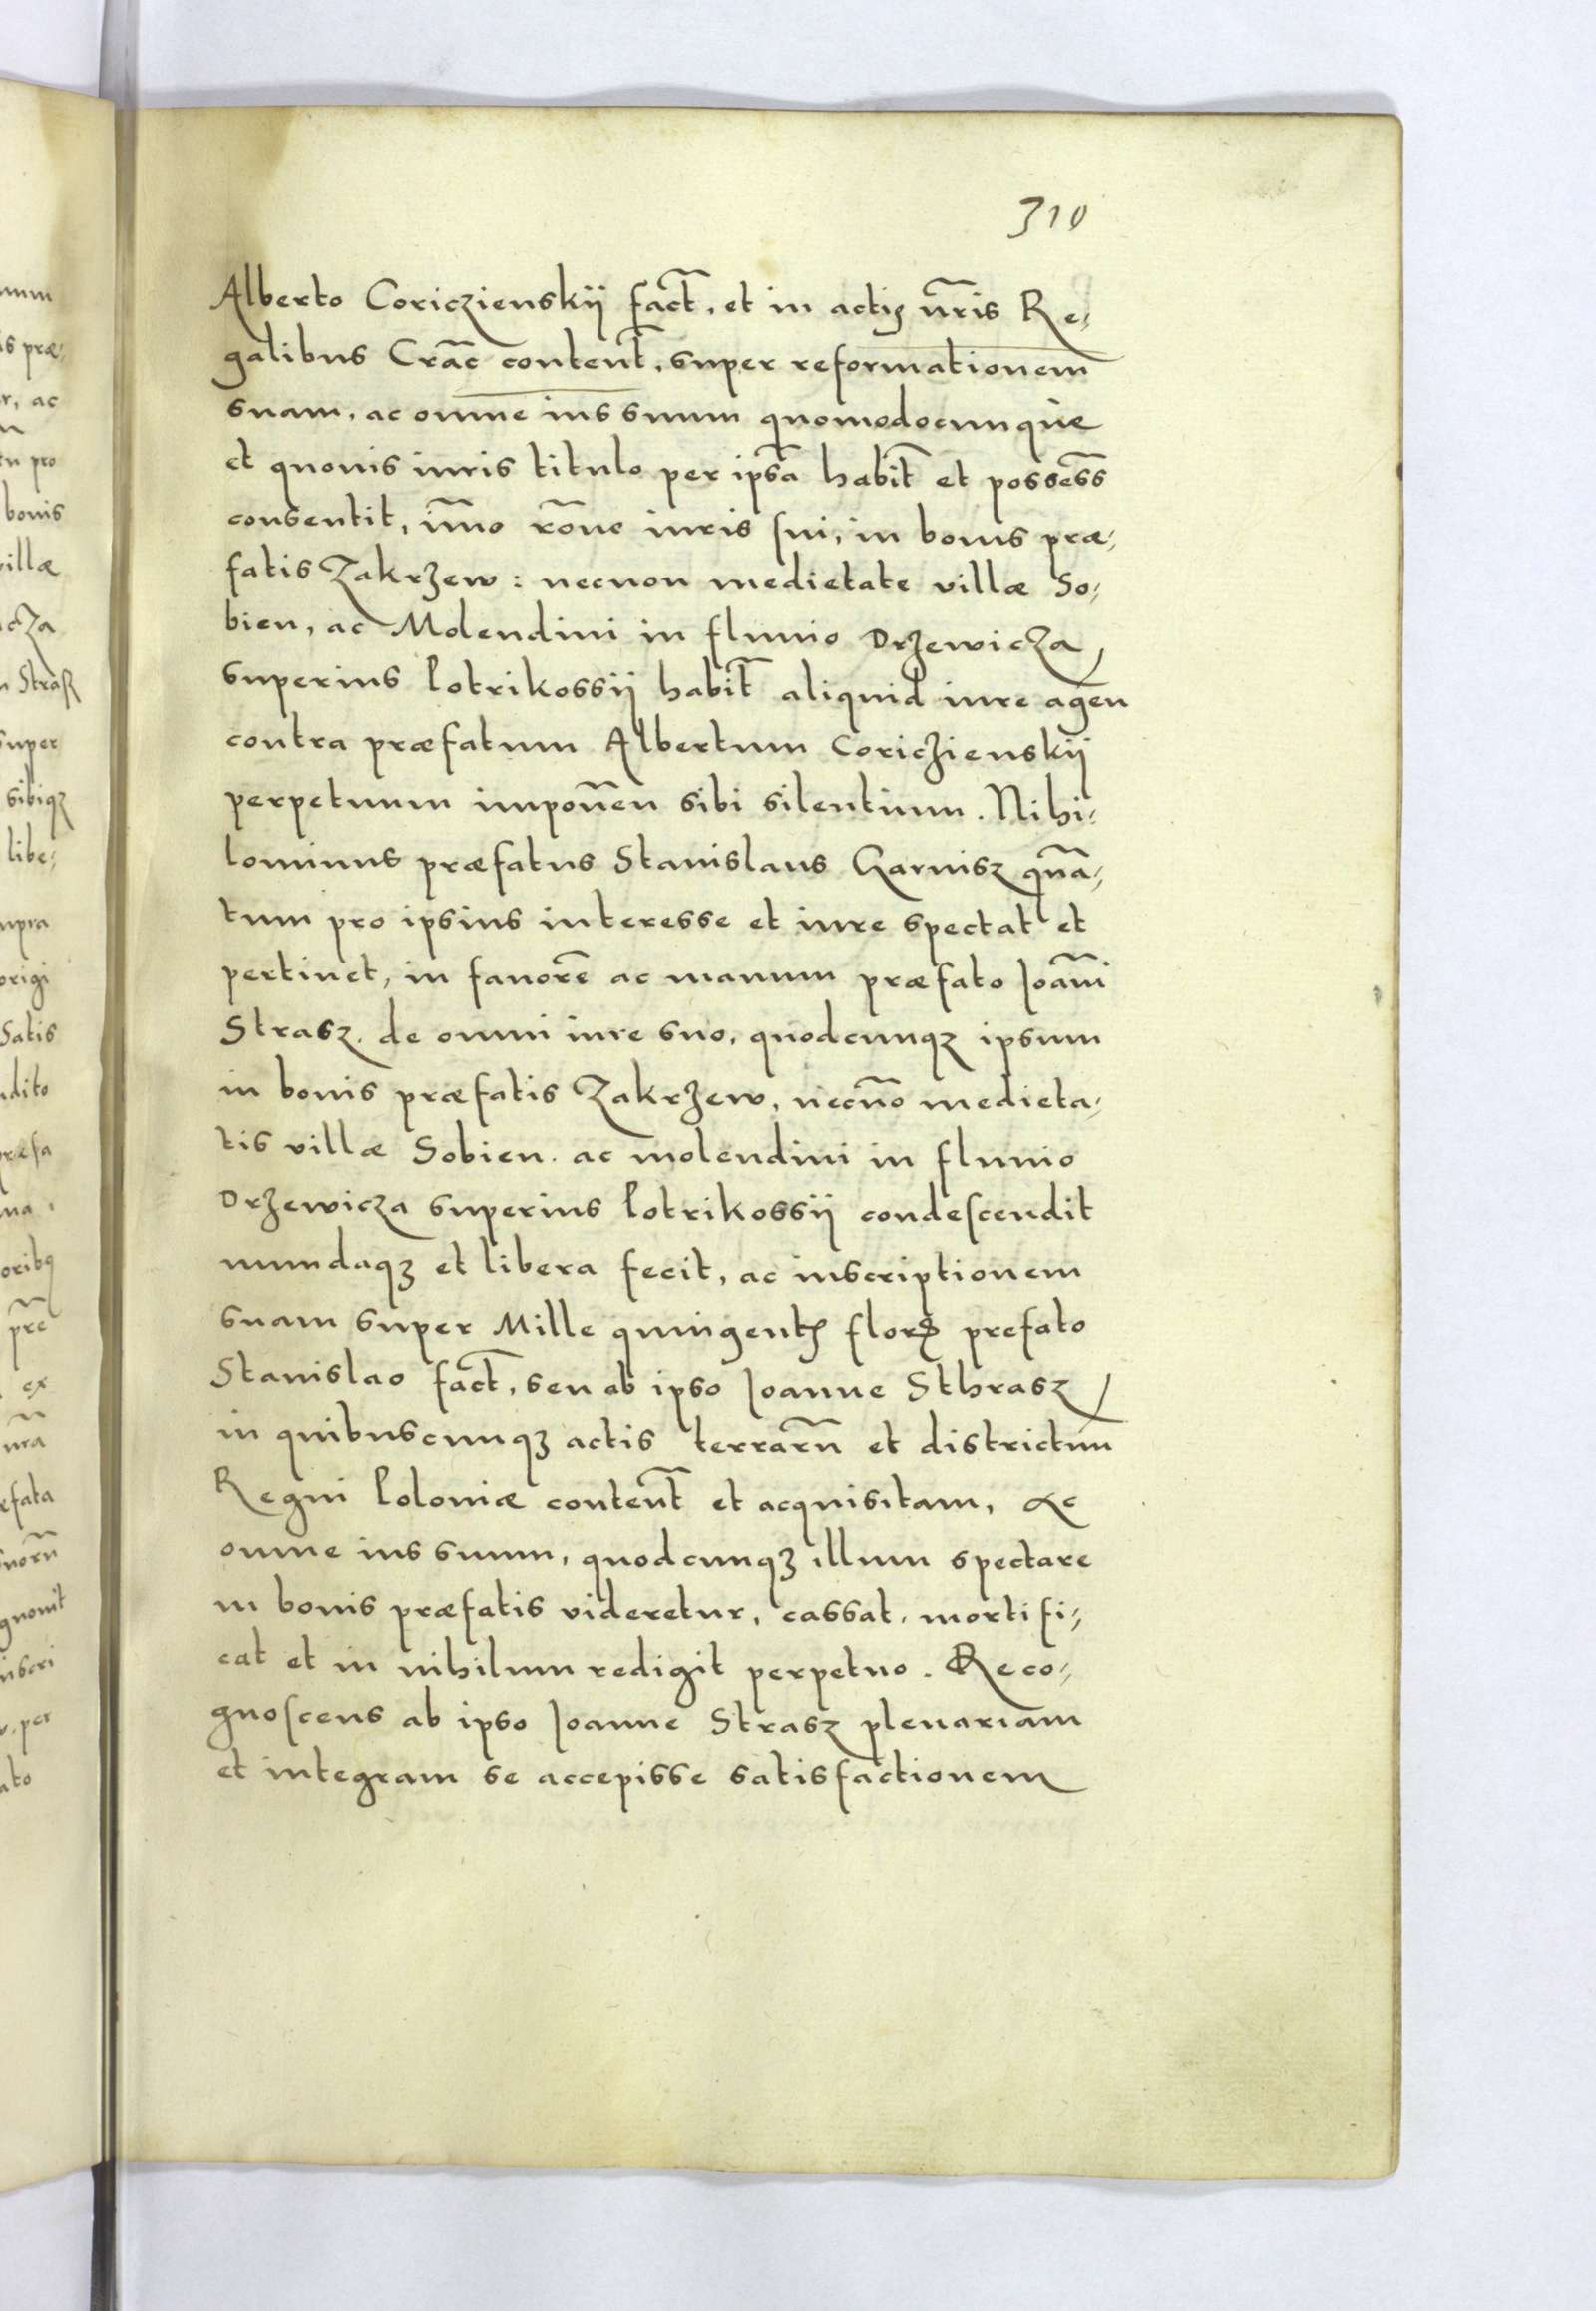 310
Alberto Coriczienskij fact̃, et in actis nr̃is Re-
galibus Crãc content̃, super reformationem
suam, ac omne ius suum quomodocunque
et quouis iuris titulo per ips̃a habit̃ et possess̃
consentit, im̃o rõne iuris sui, in bonis præ-
fatis Zakrzew: necnon medietate villæ So-
bien, ac Molendini in fluuio Drzewicza
superius Potrikossij habit̃ aliquid iure agen̄
contra præfatum Albertum Coriczienskij
perpetuum imponen̄ sibi silentium. Nihi-
lominus præfatus Stanislaus Garnisz quã-
tum pro ipsius interesse et iure spectat et
pertinet, in fauorẽ ac manum præfato Joañi
Strasz. de omni iure suo, quodcunqꝫ ipsum
in bonis præfatis Zakrzew, necnõ medieta-
tis villæ Sobien. ac molendini in fluuio
Drzewicza superius Potrikossij condescendit
mundaqꝫ et libera fecit, ac inscriptionem
suam super Mille quingent̃ flor̃ prefato
Stanislao fact̃, seu ab ipso Joanne Sthrasz
in quibuscunqꝫ actis terrarũ et districtuu̅
Regni Poloniæ content̃ et acquisitam, ac
omne ius suum, quodcunqꝫ illum spectare
in bonis præfatis videretur, cassat, mortifi-
cat et in nihilum redigit perpetuo. Reco-
gnoscens ab ipso Joanne Strasz plenariam
et integram se accepisse satisfactionem